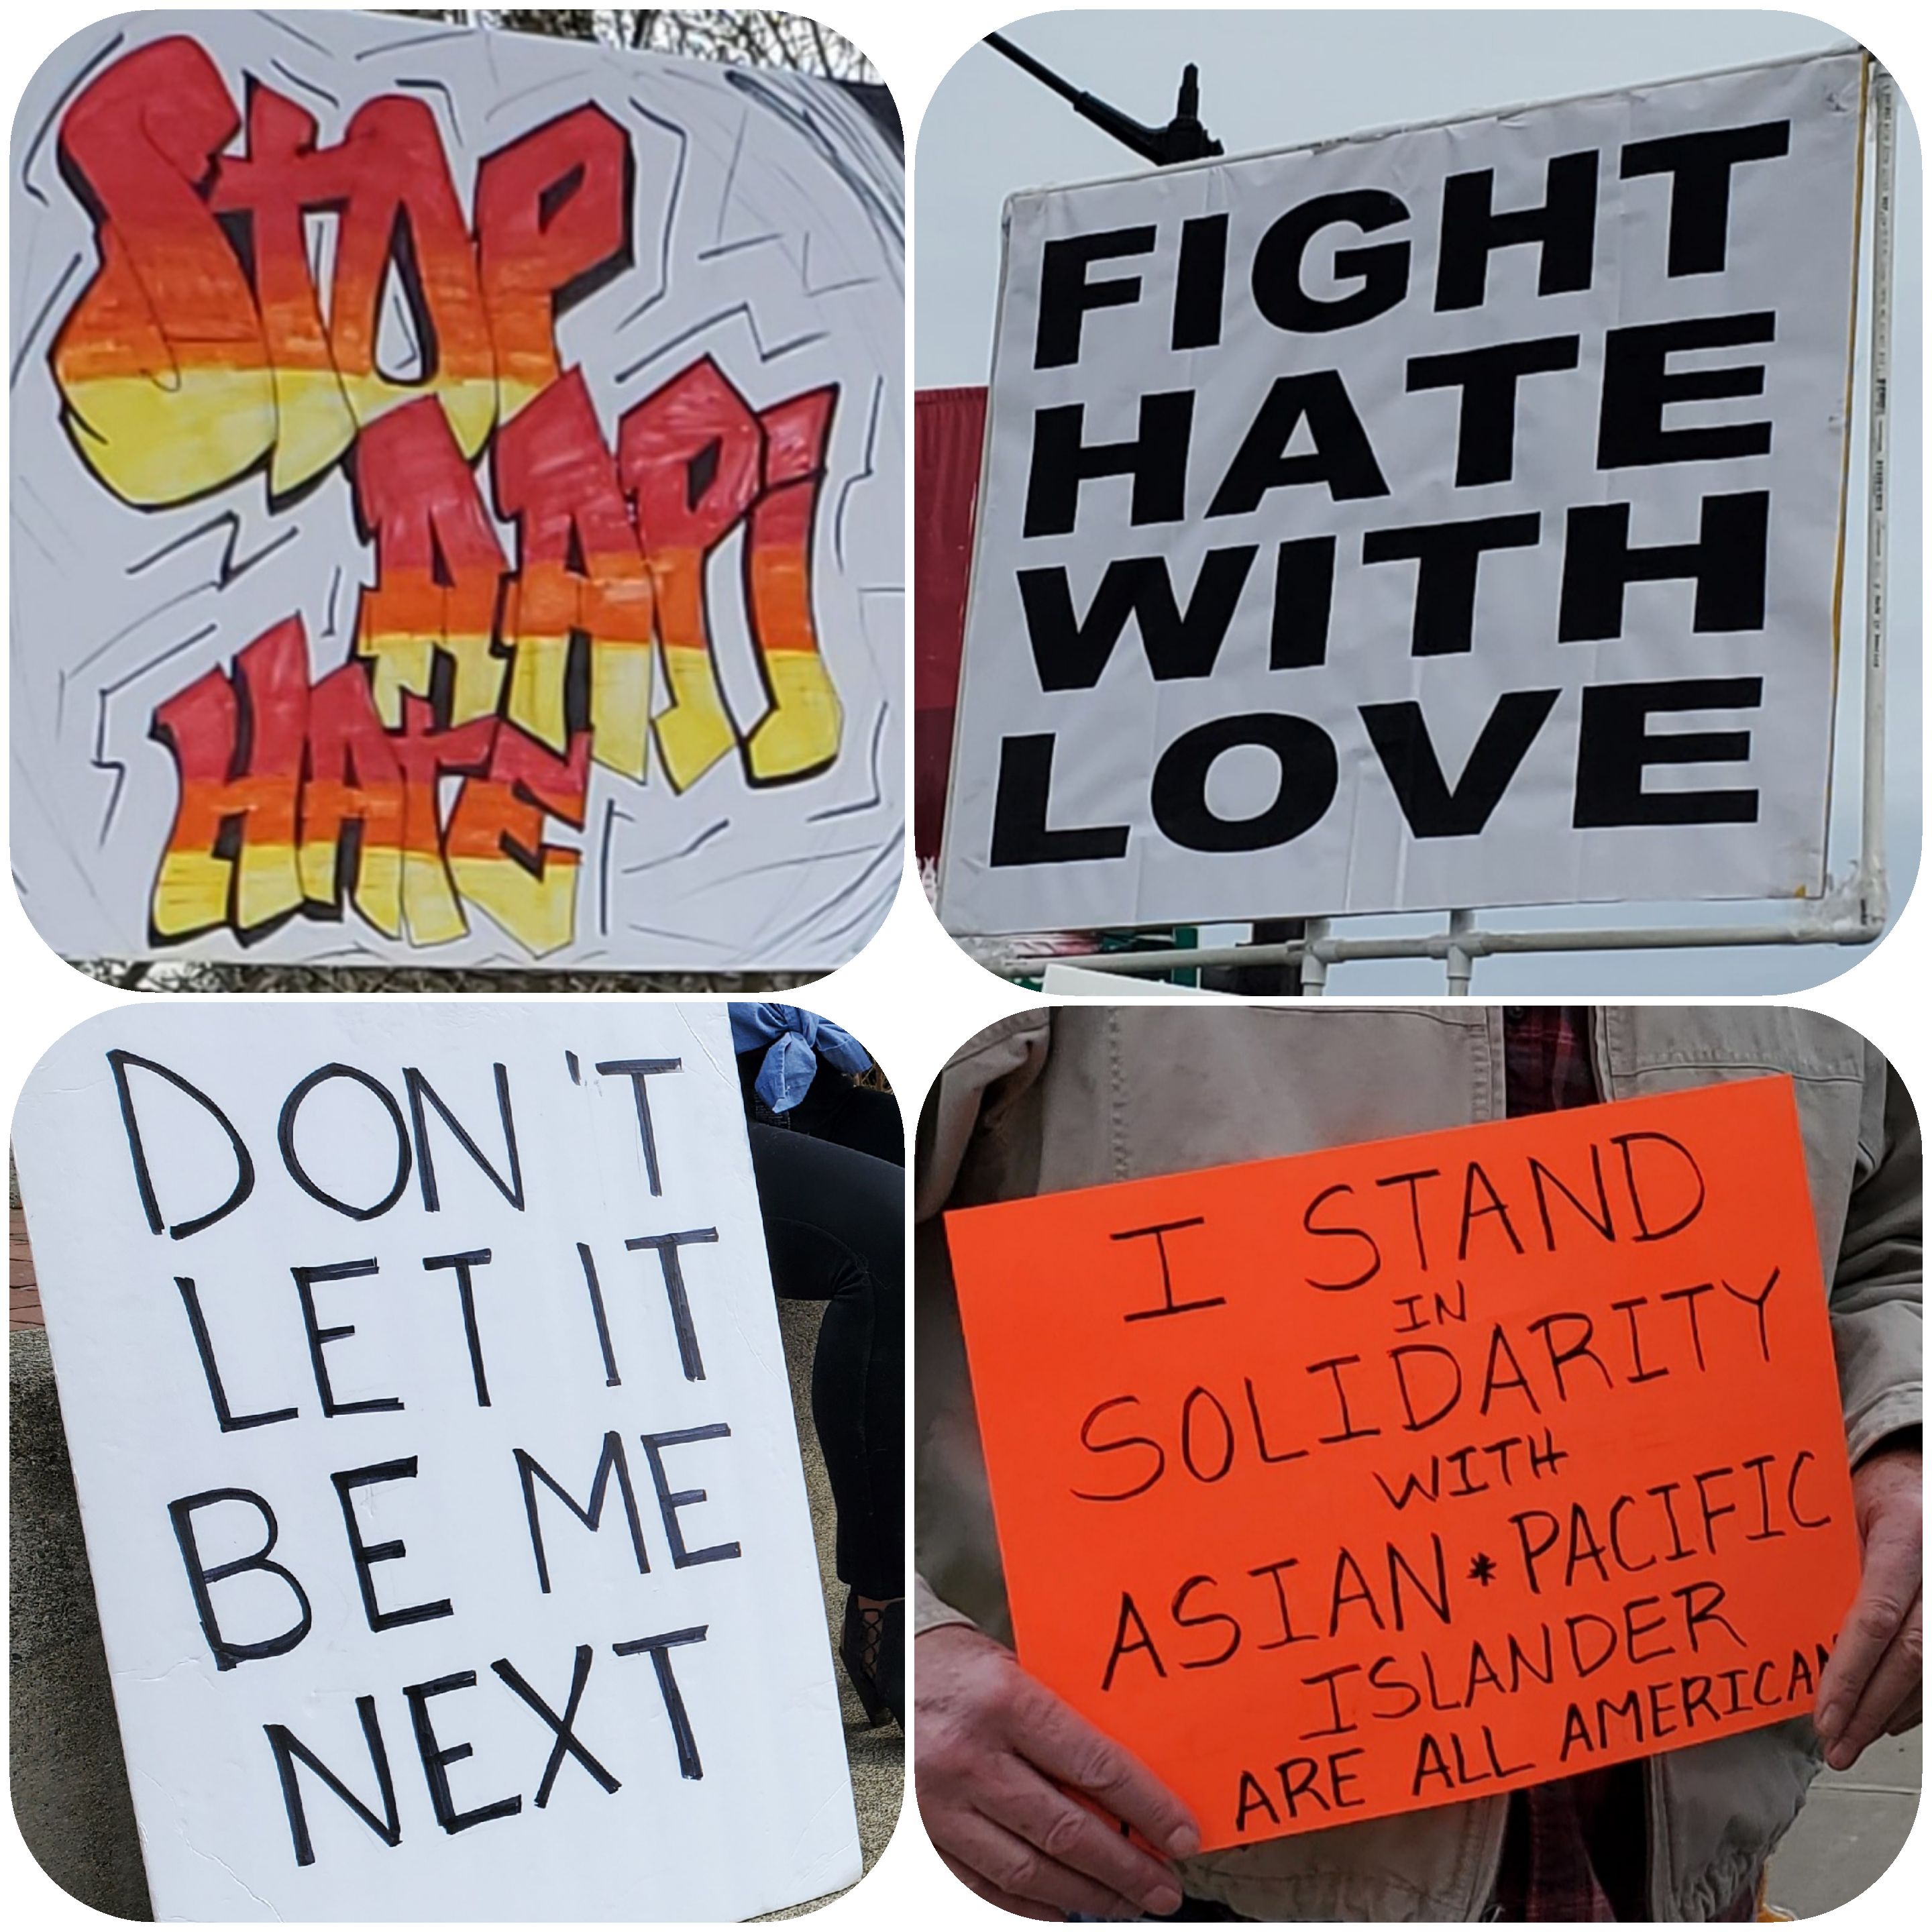 STOP
AAPI
HATE
FIGHT
HATE
WITH
LOVE
DON'T
LET IT
BE ME
NEXT
I STAND
IN
SOLIDARITY
WITH
ASIAN * PACIFIC
ISLANDER
ARE ALL AMERICAN